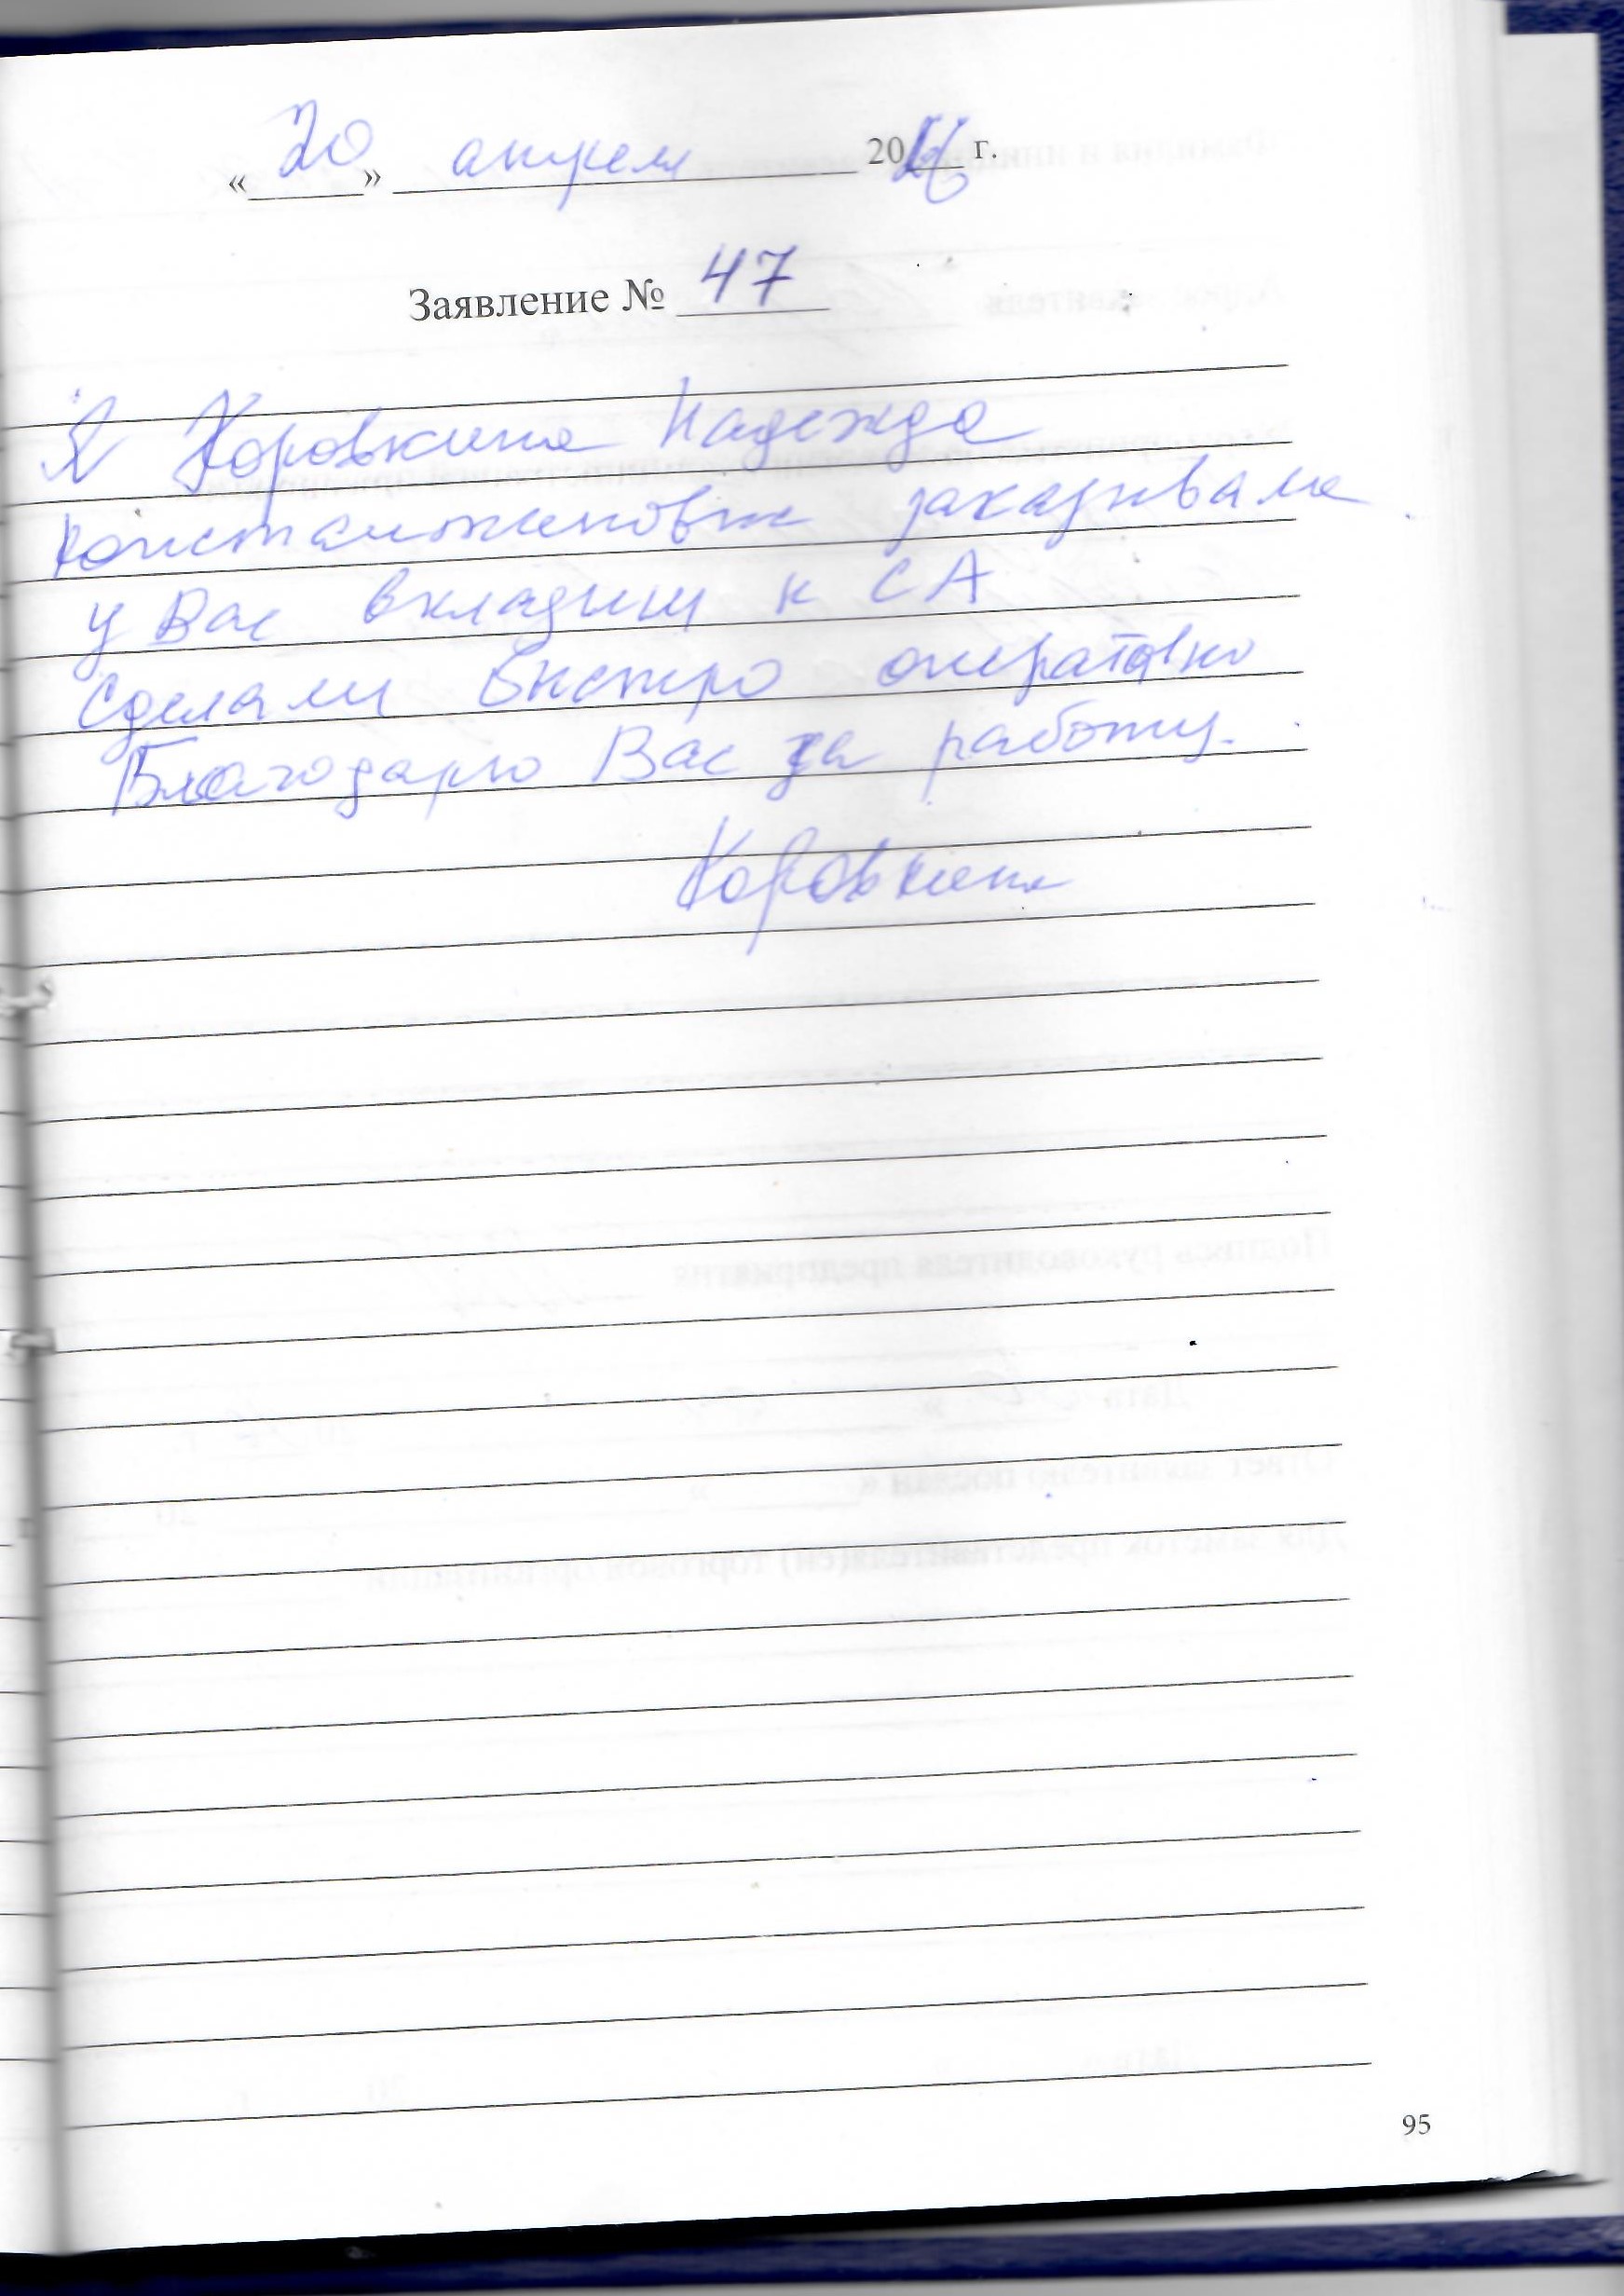 «20» апреля 20 г.
Заявление № 47
Я Коровкина Надежда
Константиновна заказывала
у Вас вкладыш к СА
сделали быстро оперативно
Благодарю Вас за работу.
Коровкина
95